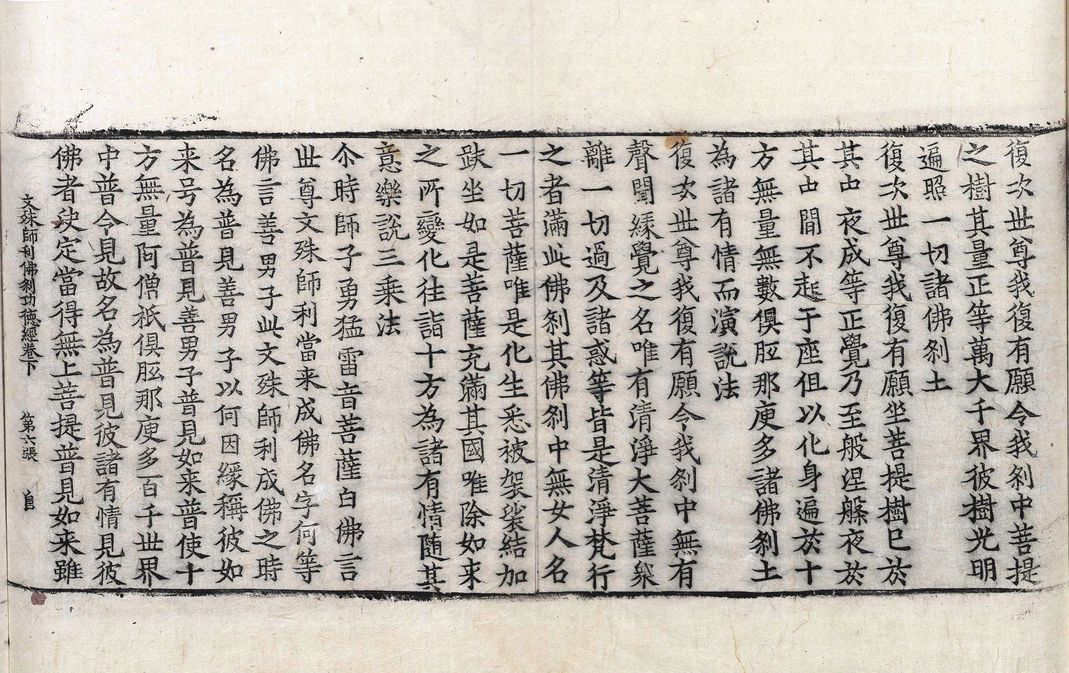 復次世尊我復有願令我刹中菩提
之樹其量正等萬大千界彼樹光明
遍照一切諸佛刹土
復次世尊我復有願坐菩提樹已於
其中夜成等正覺乃至般涅槃夜於
其中間不起于座但以化身遍於十
方無量無數俱胝那庾多諸佛刹土
為諸有情而演說法
復次世尊我復有願令我刹中無有
聲聞緣覺之名唯有清淨大菩薩衆
離一切過及諸惑等皆是清淨梵行
之者滿此佛刹其佛刹中無女人名
一切菩薩唯是化生悉被袈裟結加
趺坐如是菩薩充滿其國唯除如來
之所變化往詣十方為諸有情隨其
意樂說三乘法
尒時師子勇猛雷音菩薩白佛言
世尊文殊師利當来成佛名字何等
佛言善男子此文殊師利成佛之時
名為普見善男子以何因緣稱彼如
来号為普見善男子普見如来普使十
方無量阿僧祇俱胝那庾多百千世界
中普令見故名為普見彼諸有情見彼
佛者決定當得無上菩提普見如来雖
文殊師利佛刹功德經卷下 第六張 自